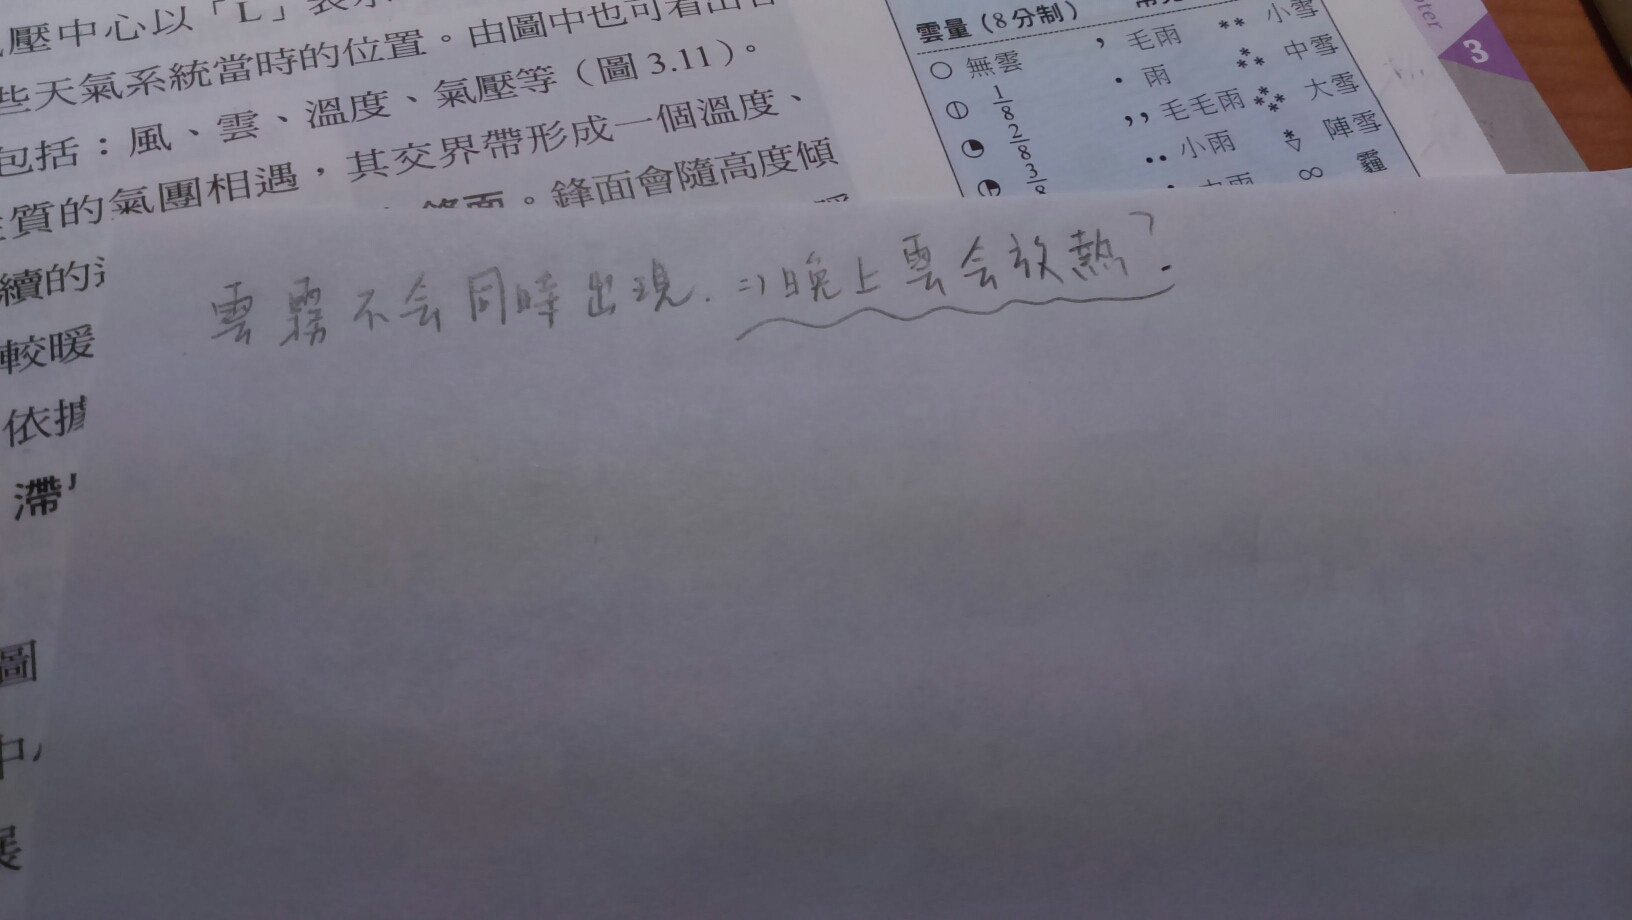 壓中心以「L」表示
些天氣系統當時的位置。由圖中也可看出各
包括：風、雲、溫度、氣壓等（圖 3.11）。
質的氣團相遇，其交界帶形成一個溫度、
鋒面。鋒面會隨高度傾
續的
較暖
依據
滯
圖
中
展
雲量（8分制）
無雲
1/8
2/8
3/8
， 毛雨
• 雨
,, 毛毛雨
•• 小雨
中雨
** 小雪
中雪
大雪
陣雪
∞ 霾
3
雲霧不会同時出現. ⇒晚上雲会放熱?